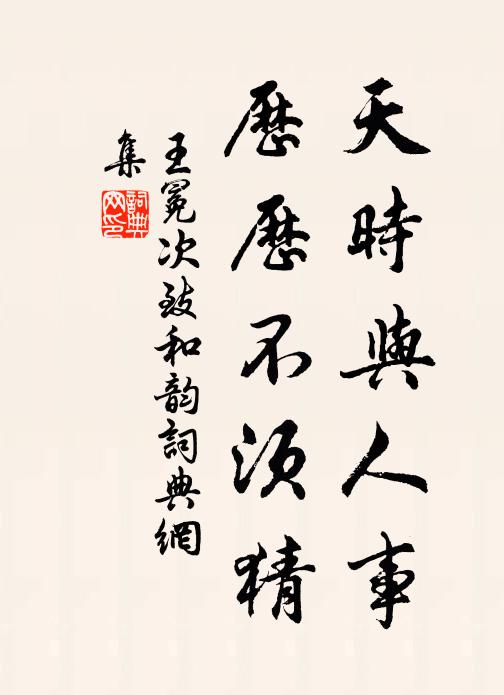 天時與人事
歷歷不須猜
王冕次致和韵詞典網
集
詞典
网印